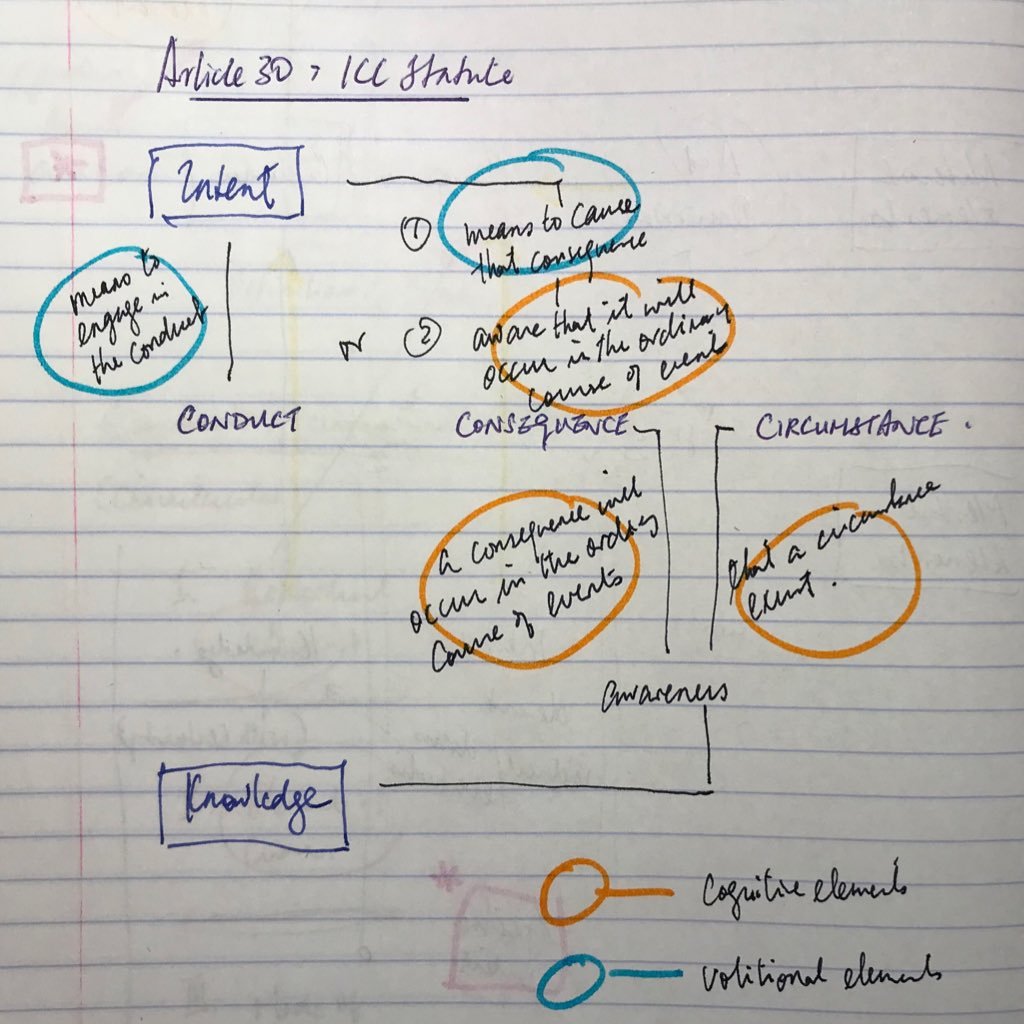 Article 30, ICC Statute
Intent
① means to cause
that consequence
means to
engage in
the conduct
or ② aware that it will
occur in the ordinary
course of events
CONDUCT CONSEQUENCE CIRCUMSTANCE.
a consequence will
occur in the ordinary
course of events
that a circumstance
exist.
awareness
Knowledge
cognitive elements
volitional elements